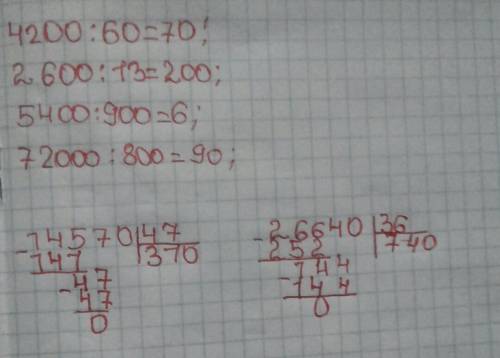 4200:60=70;
2600:13=200;
5400:900=6;
72000:800=90;
-14570|47
141 |370
-47
47
0
-26640|36
252 |740
-144
144
0